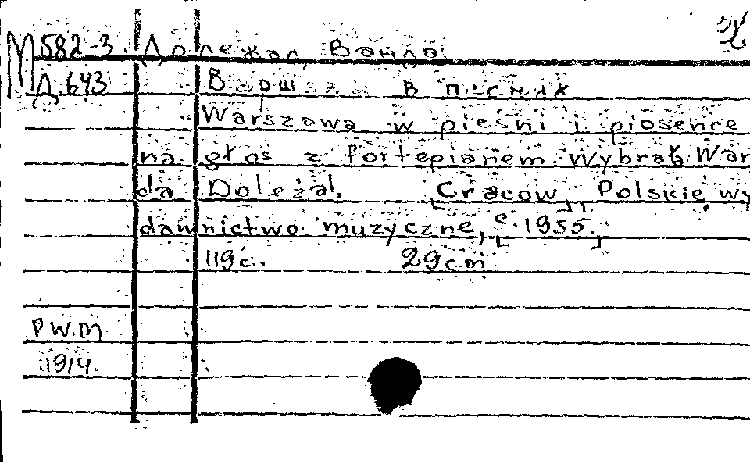 M 582-3 Долежал, Ванда
Д.643 Варшава в писнях
Warszawa w pieśni i piosence
na głos z fortepianem wybrał Wan
da Doleżal. Cracow, Polskie wy
dawnictwo muzyczne, c.1955.
119c. 29cm
P.W.M
1914